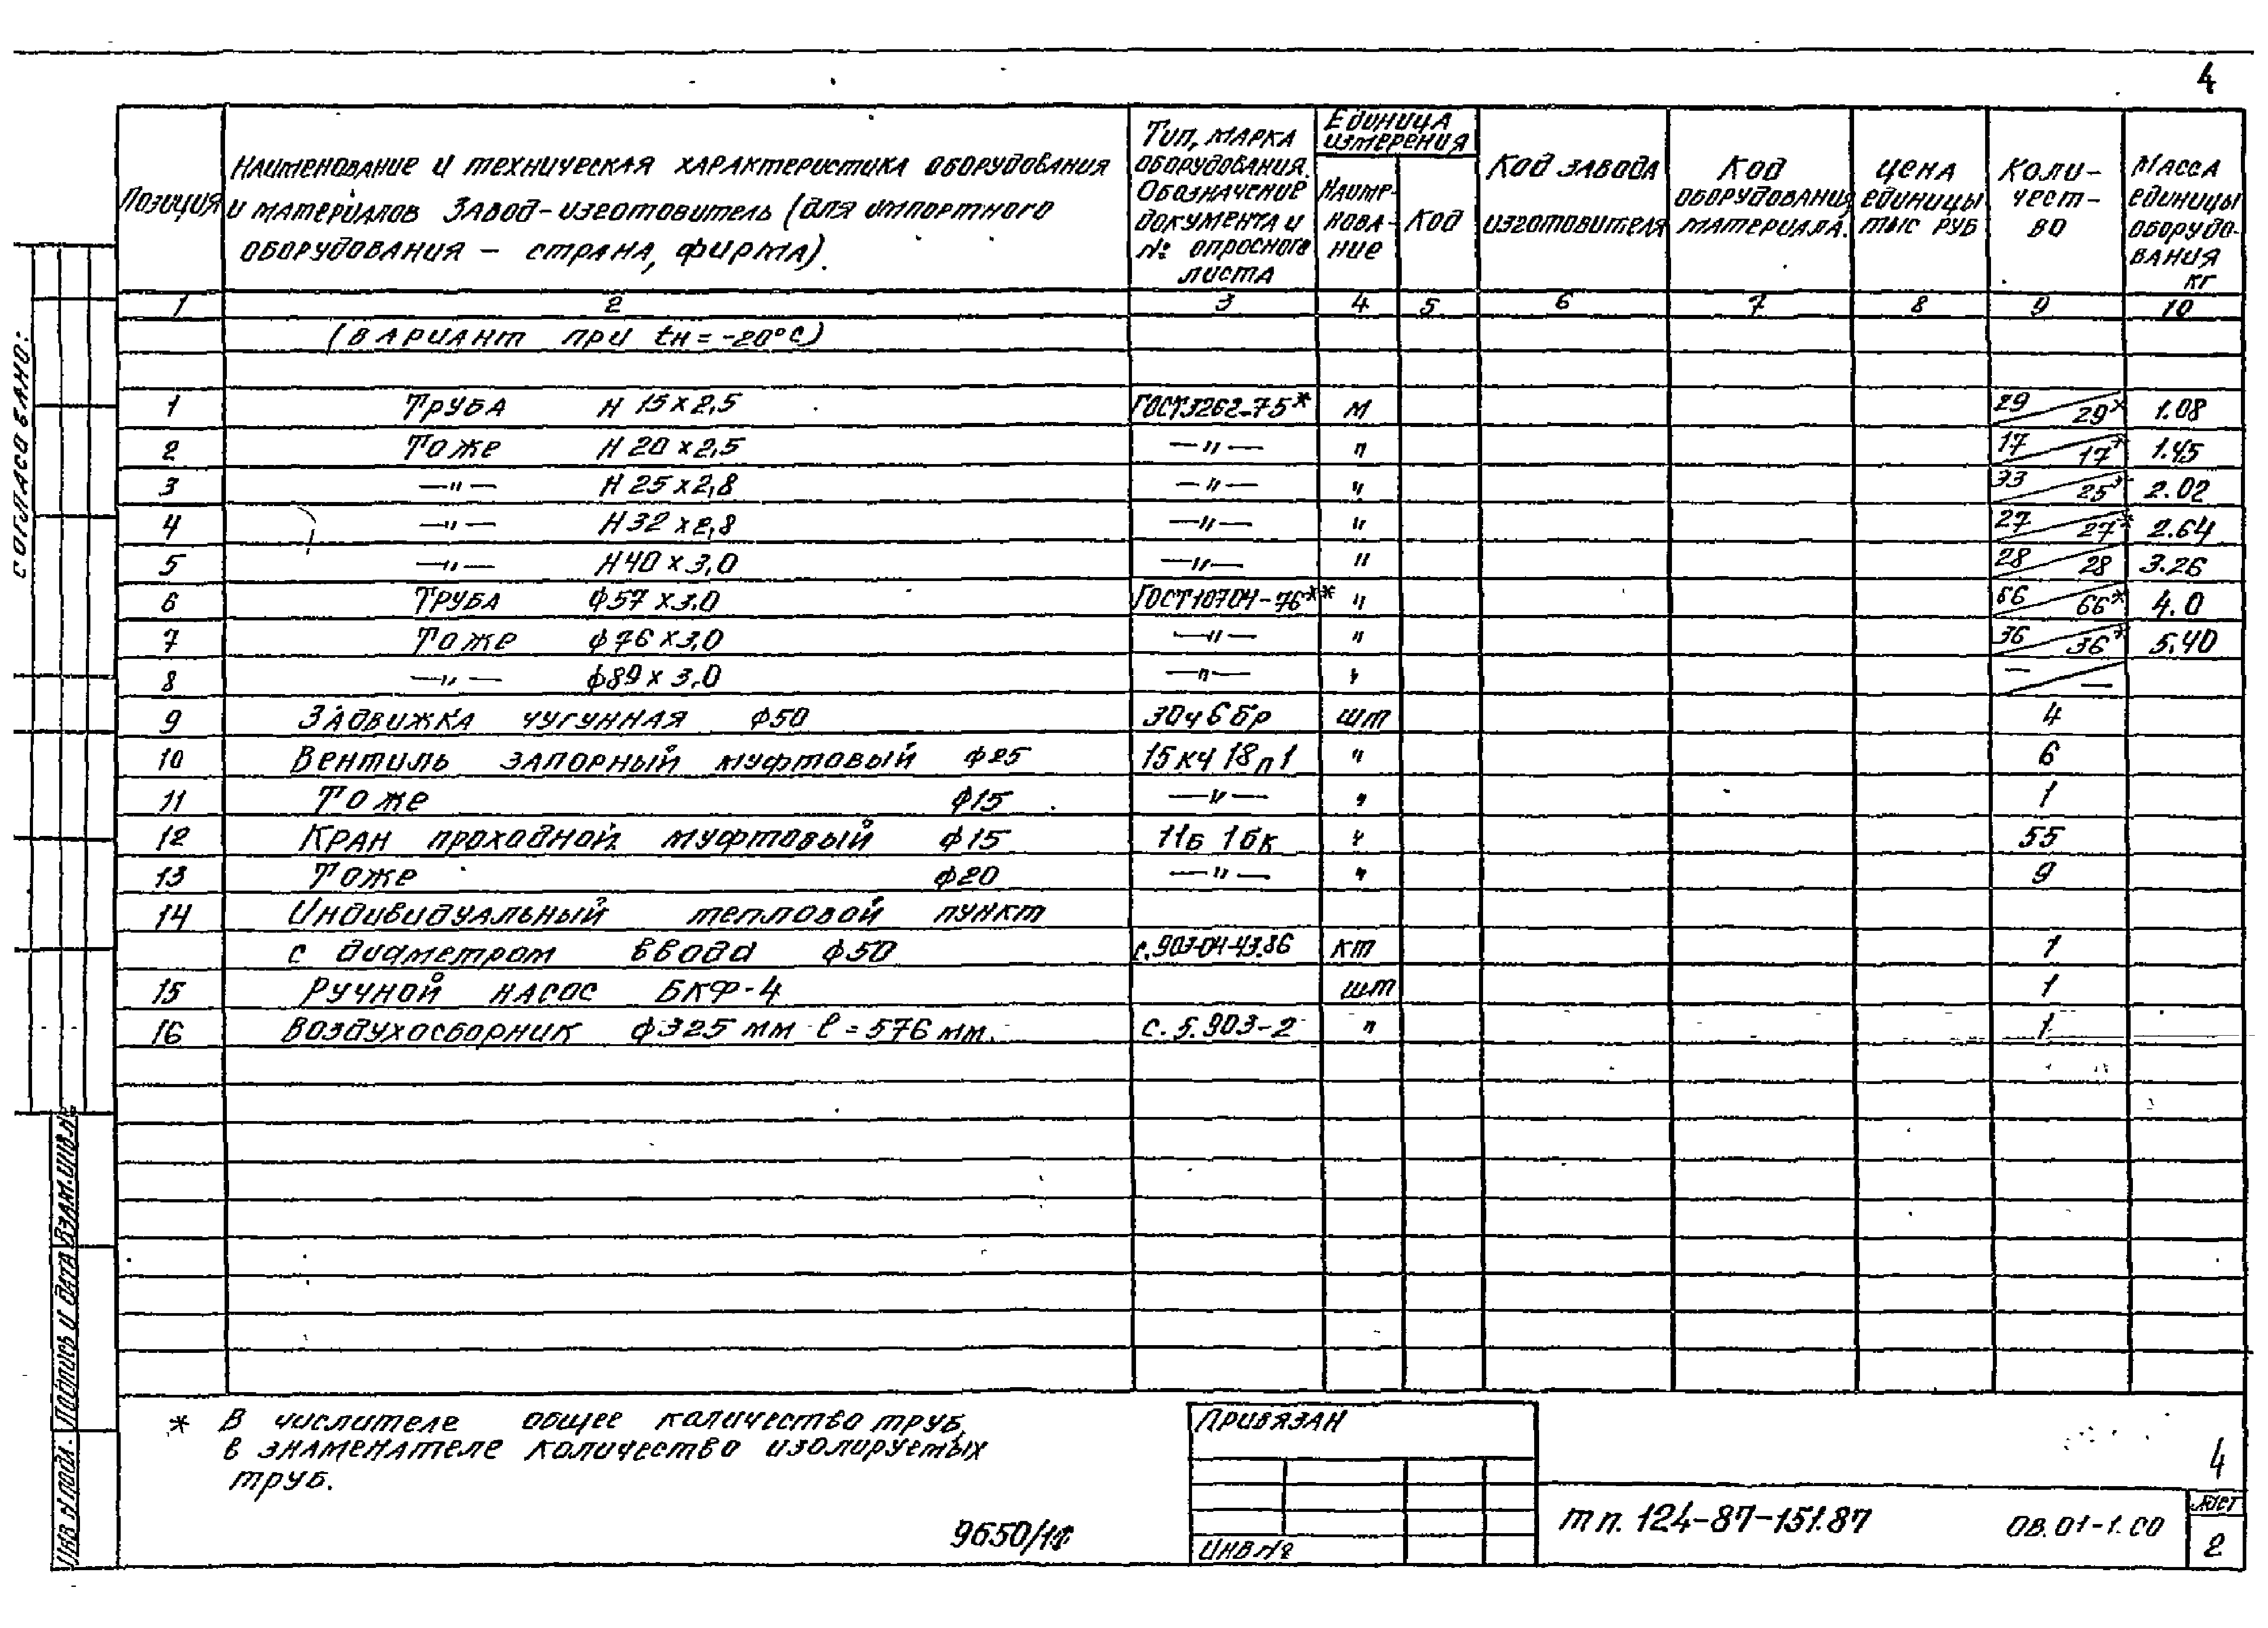 4
Позиция
Наименование и техническая характеристика оборудования
и материалов Завод-изготовитель (для импортного
оборудования – страна, фирма).
Тип, марка
оборудования.
Обозначение
документа и
№ опросного
листа
Единица
измерения
Наиме-
нова-
ние
Код
Код завода
изготовителя
Код
оборудования,
материала.
Цена
единицы
тыс руб
Коли-
чест-
во
Масса
единицы
оборудо-
вания
кг
1 2 3 4 5 6 7 8 9 10
(вариант при tн = -20°С)
1 Труба Н 15х2,5 ГОСТ3262-75* м 29/29* 1.08
2 Тоже Н 20х2,5 —"— " 17/17* 1.45
3 —"— Н 25х2,8 —"— " 33/25* 2.02
4 —"— Н32х2,8 —"— " 27/27* 2.64
5 —"— Н40х3,0 —"— " 28/28 3.26
6 Труба ф57х3.0 ГОСТ10704-76** " 66/66* 4.0
7 Тоже ф76х3,0 —"— " 36/36* 5.40
8 —"— ф89х3,0 —"— " —/—
9 Задвижка чугунная ф50 30ч6бр шт 4
10 Вентиль запорный муфтовый ф25 15кч18п1 " 6
11 Тоже ф15 —"— " 1
12 Кран проходной муфтовый ф15 11б 1бк " 55
13 Тоже ф20 —"— " 9
14 Индивидуальный тепловой пункт
с диаметром ввода ф50 с.903-04-43.86 кт 1
15 Ручной насос БКФ-4 шт 1
16 Воздухосборник ф325мм ℓ=576мм. с. 5.903-2 " 1
* В числителе общее количество труб,
в знаменателе количество изолируемых
труб.
9650/1
Привязан
Инв №
4
тп. 124-87-151.87
ОВ.01-1.СО
Лист
2
Согласовано:
Взам.инв.№
Подпись и дата
Инв № подл.